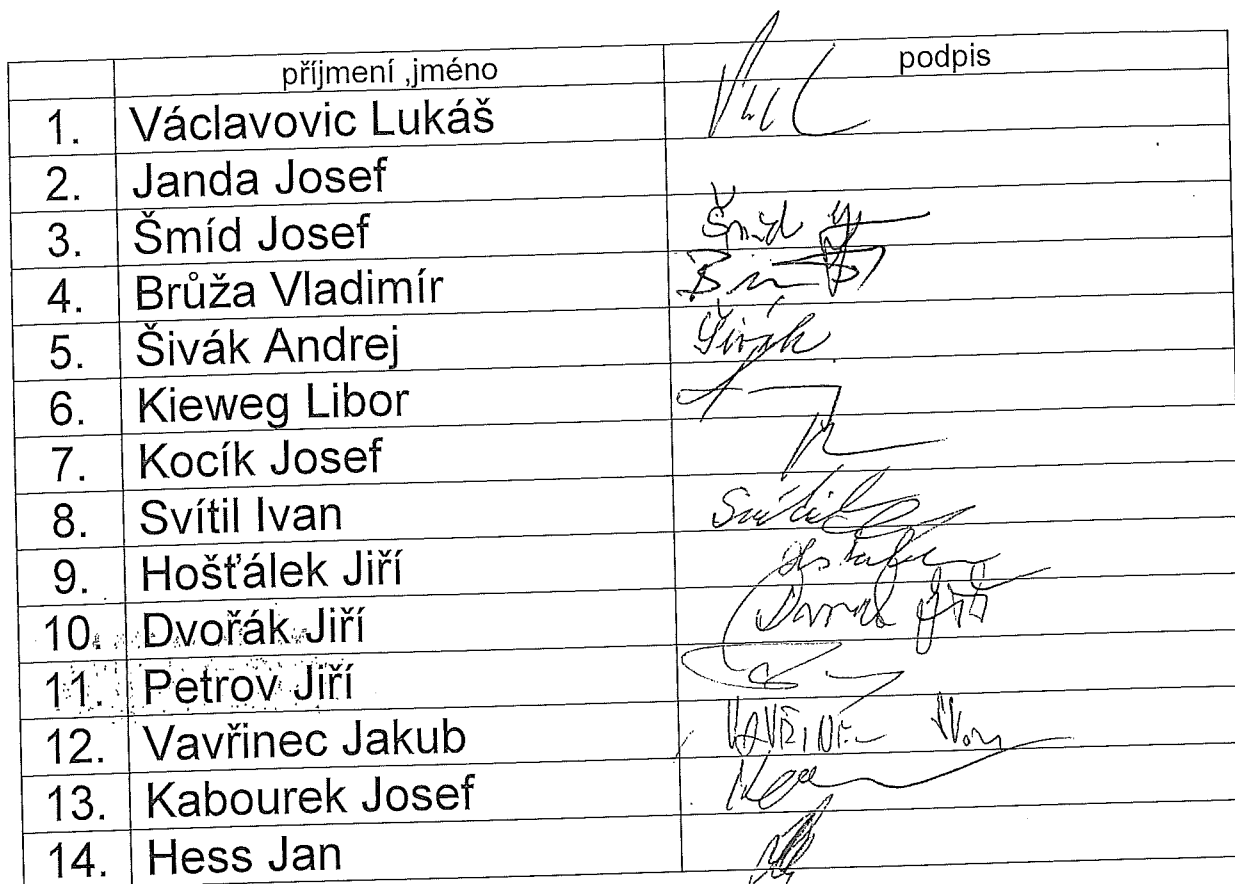 příjmení ,jméno podpis
1. Václavovic Lukáš
2. Janda Josef
3. Šmíd Josef Šmíd
4. Brůža Vladimír
5. Šivák Andrej Šivák
6. Kieweg Libor
7. Kocík Josef
8. Svítil Ivan Svítil
9. Hošťálek Jiří
10. Dvořák Jiří Dvořák Jiří
11. Petrov Jiří
12. Vavřinec Jakub
13. Kabourek Josef
14. Hess Jan